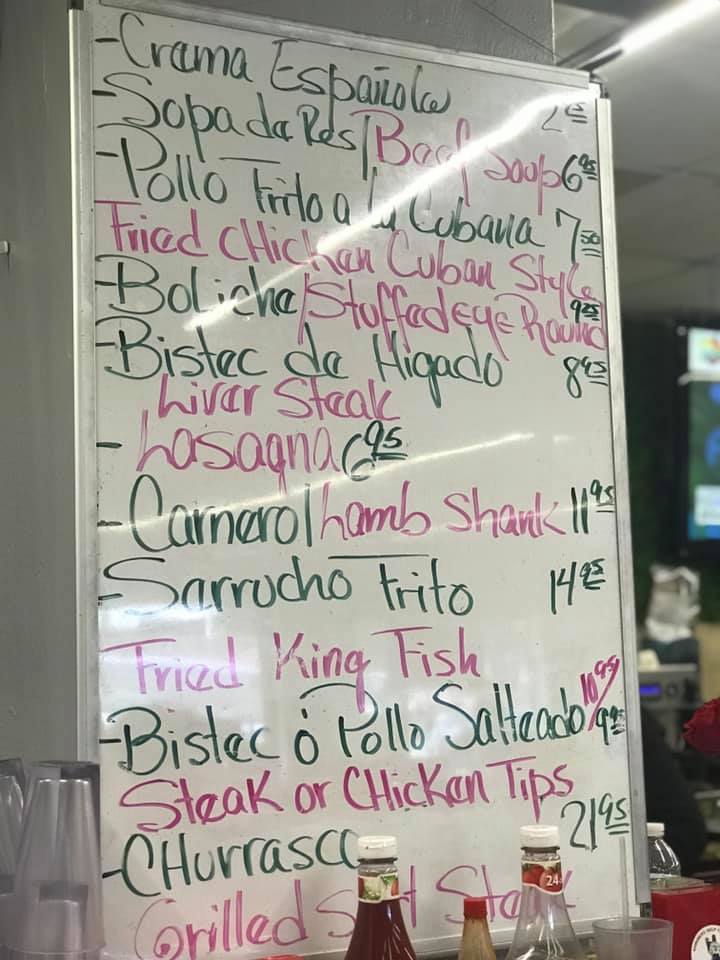 -Crema Española
-Sopa de Res/Beef Soup 6.95
-Pollo Frito a la Cubana 7.50
Fried CHicken Cuban Style
-Boliche/Stuffed eye Round 9.25
-Bistec de Higado 8.95
Liver Steak
-Lasagna 6.95
-Carnero/Lamb Shank 11.95
-Sarrucho Frito 14.95
Fried King Fish
-Bistec ó Pollo Salteado 10.95/9.95
Steak or CHicken Tips
-CHurrasco 21.95
Grilled